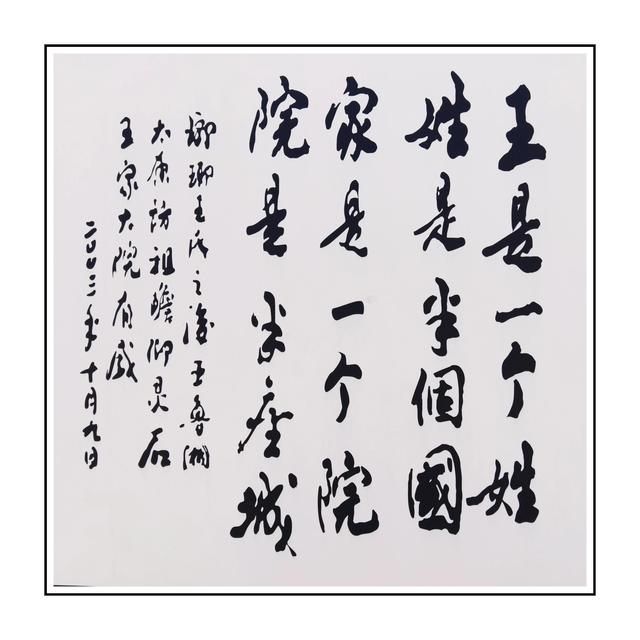 王是一个姓
姓是半個國
家是一个院
院是半座城
瑯琊王氏之後王鲁湘
太原访祖瞻仰灵石
王家大院有感
二〇〇三年十月九日